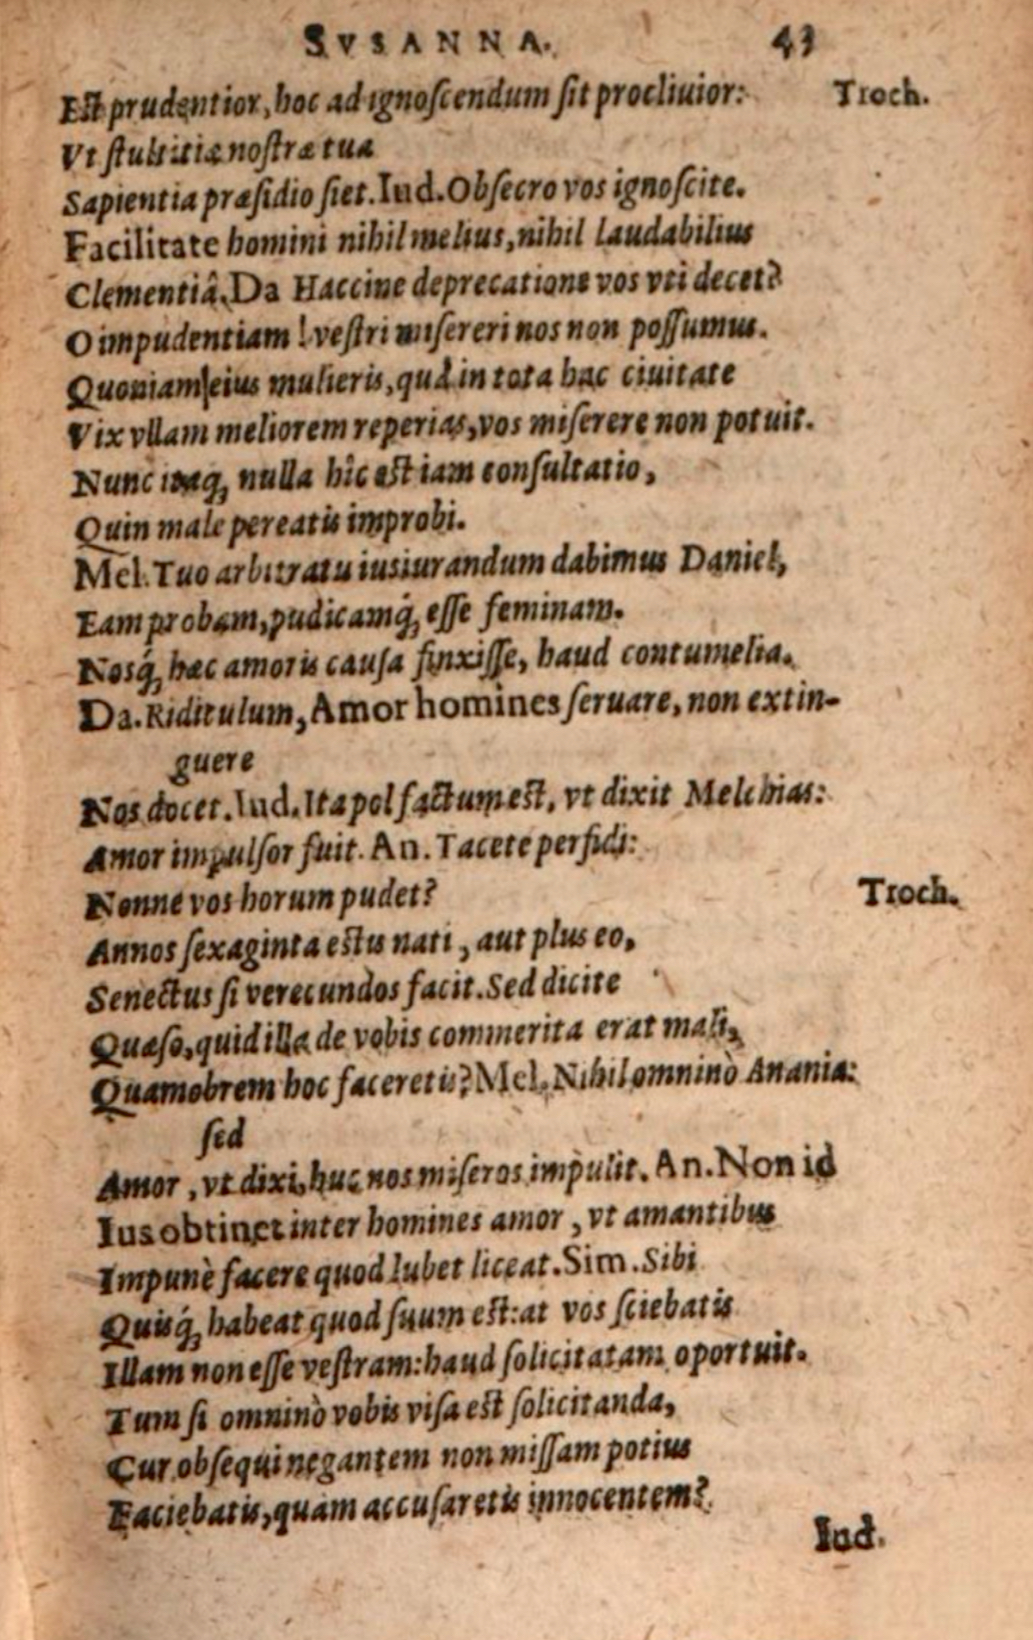 SVSANNA. 43
Est prudentior, hoc ad ignoſcendum ſit procliuior: Troch.
Vt ſtultitiæ noſtræ tua
Sapientia præſidio ſiet. Iud. Obſecro vos ignoſcite.
Facilitate homini nihil melius, nihil laudabilius
Clementiâ. Da Haccine deprecatione vos vti decet?
O impudentiam! veſtri miſereri nos non poſſumus.
Quoniam eius mulieris, quâ in tota hac ciuitate
Vix vllam meliorem reperias, vos miſerere non potuit.
Nunc itaq; nulla hîc est iam conſultatio,
Quin male pereatis improbi.
Mel. Tuo arbitratu iusiurandum dabimus Daniel,
Eam probam, pudicamq́; eſſe feminam.
Nosq́; hæc amoris cauſa finxiſſe, haud contumelia.
Da. Riditulum, Amor homines ſeruare, non extin-
guere
Nos docet. Iud. Ita pol factum est, vt dixit Melchias:
Amor impulſor fuit. An. Tacete perfidi:
Nonne vos horum pudet? Troch.
Annos ſexaginta estis nati, aut plus eo,
Senectus ſi verecundos facit. Sed dicite
Quæſo, quid illa de vobis commerita erat mali,
Quamobrem hoc faceretis? Mel. Nihil omninò Anania:
ſed
Amor, vt dixi, huc nos miſeros impulit. An. Non id
Ius obtinet inter homines amor, vt amantibus
Impunè facere quod lubet liceat. Sim. Sibi
Quisq́; habeat quod ſuum est: at vos ſciebatis
Illam non eſſe veſtram: haud ſolicitatam oportuit.
Tum ſi omninò vobis viſa est ſolicitanda,
Cur obſequi negantem non miſſam potius
Faciebatis, quàm accuſaretis innocentem?
Iud.